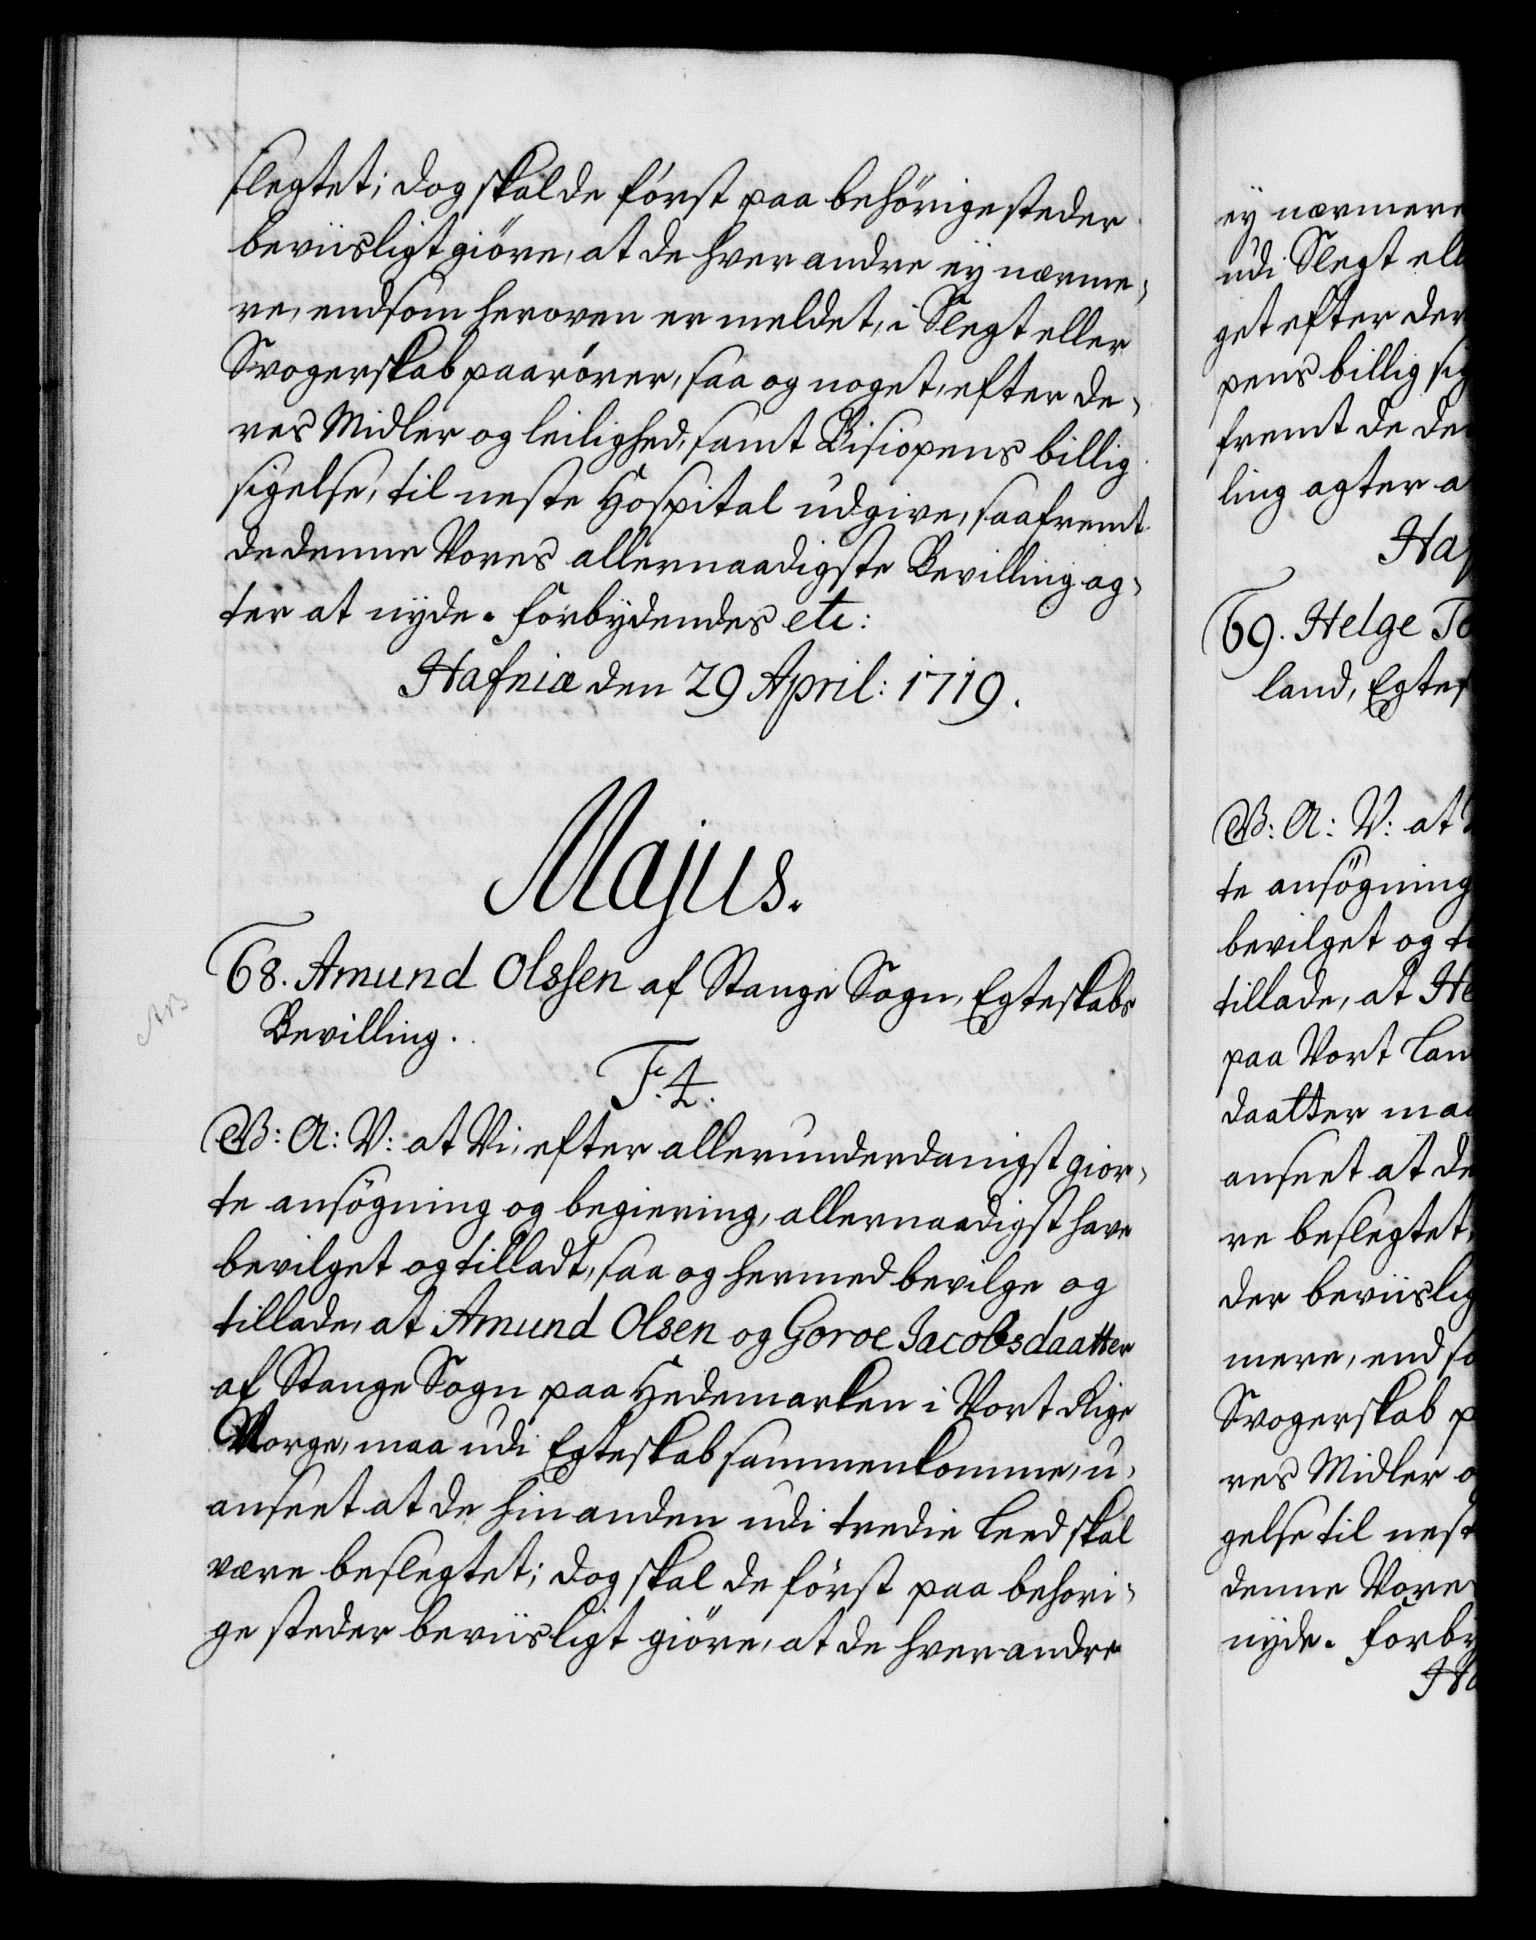 slegtet; dog skal de först paa behörige steder
beviisligt giöre, at de hver andre ey nærme,
re, end som heroven er meldet, i Slegt eller
Svogerskab paarörer, saa og noget, efter de,
res Midler og leilighed, samt Bisiopens billig
sigelse, til neste Hospital udgive, saafremt
de denne Vores allernaadigste Bevilling ag,
ter at nyde. Forbydendes etc:
Hafniæ den 29 April: 1719.
Majus.
68. Amund Olssen af Stange Sogn, Egteskabs
Bevilling.
F. 4.
NB
G. A: V: at Vi, efter allerunderdanigst gior,
te ansögning og begiering, allernaadigst have
bevilget og tilladt, saa og hermed bevilge og
tillade, at Amund Olsen og Goroe Jacobsdaatter
af Stange Sogn paa Hedemarken i Vort Rige
Norge, maa udi Egteskab sammenkomme, u,
anseet at de hinanden udi tredie Leed skal
være beslegtet; dog skal de först paa behöri,
ge steder beviisligt giöre, at de hverandre
ey nærmere
udi Slegt ell
get efter der
pens billig sig
fremt de de
ling agter a
Haf
69. Helge To
land, Egtes
G: A: V: at
te ansögning
bevilget og t
tillade, at He
paa Vort Lan
daatter maa
anseet at de
re beslegtet
der beviislig
mere, end so
Svogerskab p
res Midler o
gelse til nest
denne Vores
nyde. Forby
Ha